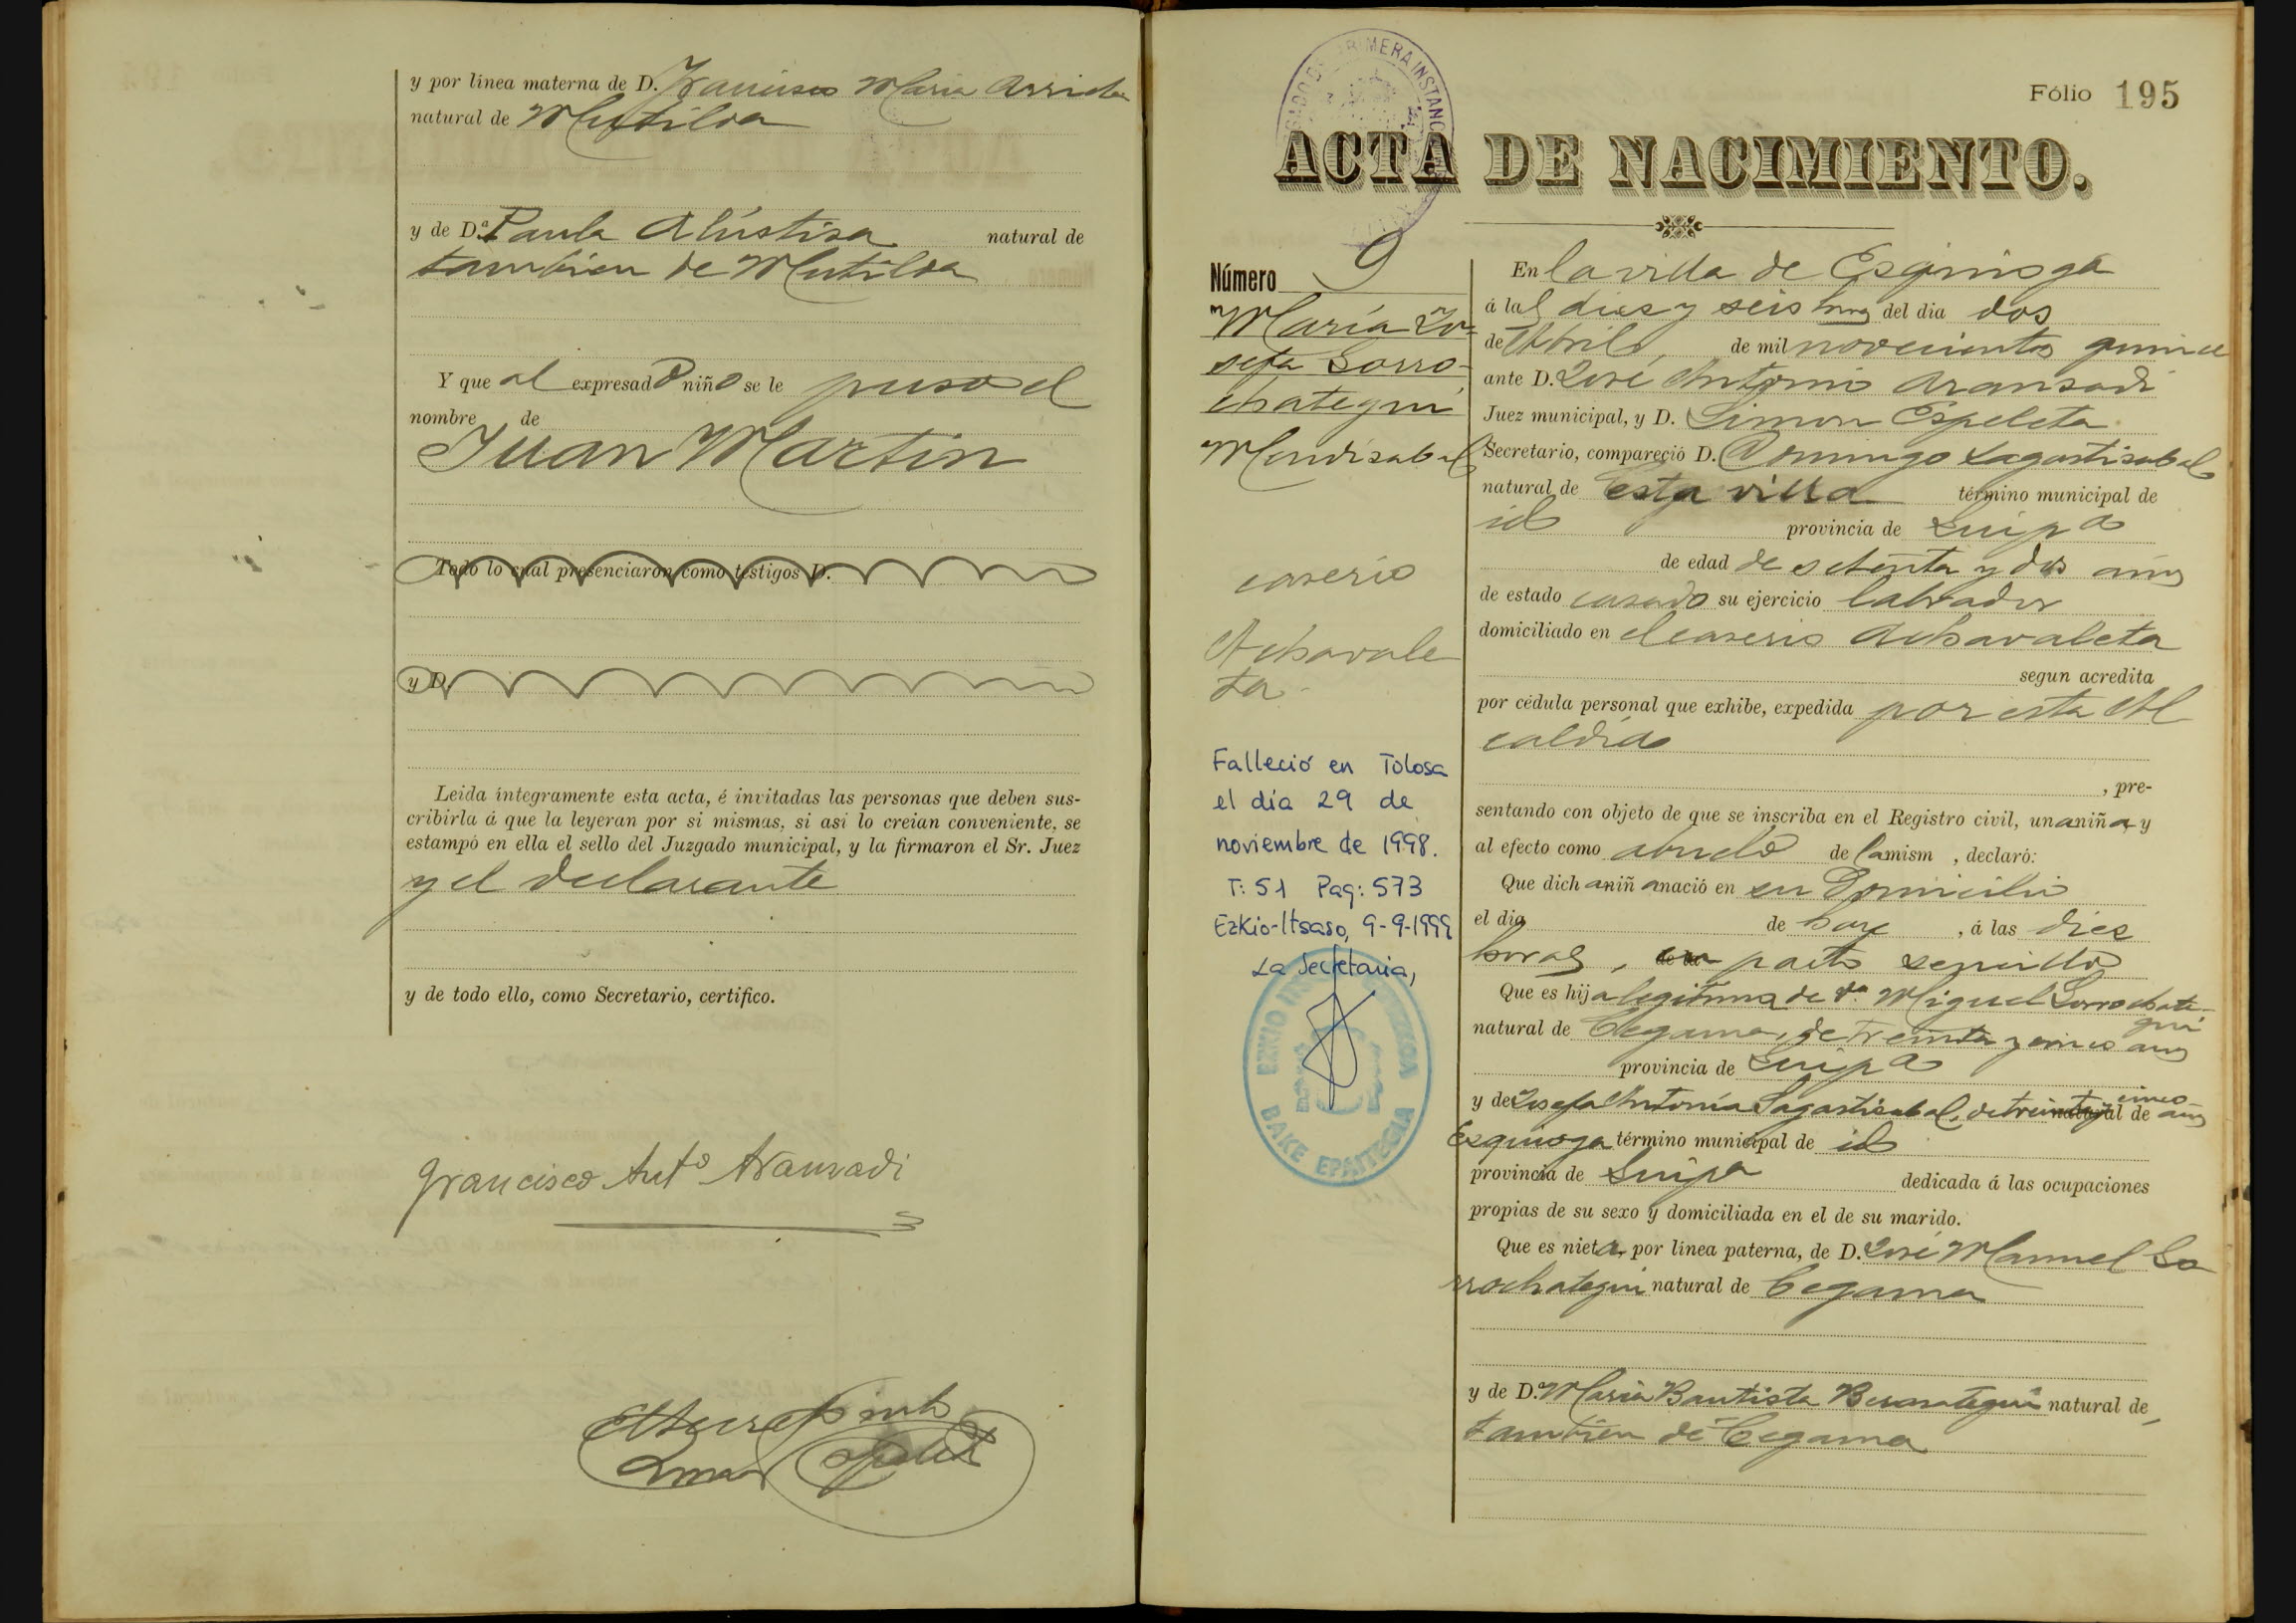 y por línea materna de D. Francisco María Arrieta
natural de Mutiloa
y de D.ª Paula Alústiza natural de
tambien de Mutiloa
Y que al expresado niño se le puso el
nombre de
Juan Martin
Todo lo cual presenciaron como testigos D.
y D.
Leida íntegramente esta acta, é invitadas las personas que deben sus-
cribirla á que la leyeran por si mismas, si asi lo creian conveniente, se
estampó en ella el sello del Juzgado municipal, y la firmaron el Sr. Juez
y el declarante
y de todo ello, como Secretario, certifico.
Francisco Ant.º Aranzadi
Fólio 195
PRIMERA INSTANC
ACTA DE NACIMIENTO.
Número 9
María Jo-
sefa Gorro-
chategui
Mendizabal
caserio
Achavale
ta
Falleció en Tolosa
el día 29 de
noviembre de 1998.
T: 51 Pag: 573
Ezkio-Itsaso, 9-9-1999
La Secretaria,
BAKE EPAITEGIA
En la villa de Ezquioga
á las diez y seis horas del dia dos
de Abril, de mil novecientos quince
ante D. José Antonio Aranzadi
Juez municipal, y D. Simon Espeleta
Secretario, compareció D. Domingo Sagastizabal
natural de esta villa término municipal de
id provincia de Guipa
de edad de setenta y dos años
de estado casado su ejercicio labrador
domiciliado en el caserio Achavaleta
segun acredita
por cédula personal que exhibe, expedida por esta Al
caldía
, pre-
sentando con objeto de que se inscriba en el Registro civil, una niña y
al efecto como abuelo de la mism , declaró:
Que dicha niña nació en su domicilio
el dia de hoy , á las diez
horas, en parto sencillo
Que es hija legitima de Miguel Gorrochate-
gui
natural de Cegama, de treinta y cinco años
provincia de Guipa
y de Josefa Antonia Sagastizabal, de treinta y cinco años natural de
Ezquioga término municipal de id
provincia de Guipa dedicada á las ocupaciones
propias de su sexo y domiciliada en el de su marido.
Que es nieta, por línea paterna, de D. José Manuel Go
rrochategui natural de Cegama
y de D.ª María Bautista Berasategui natural de
tambien de Cegama